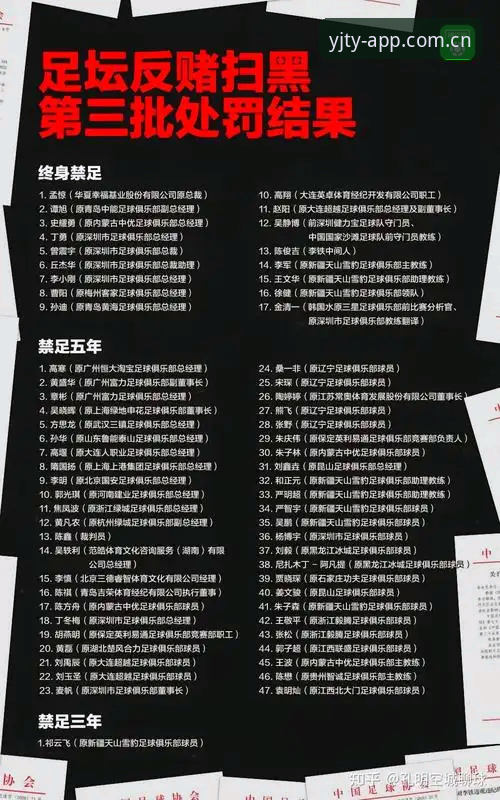 yjty-app.com.cn
足坛反赌扫黑
第三批处罚结果
终身禁足
1. 孟惊（华夏幸福基业股份有限公司原总裁）
2. 谭旭（原青岛中能足球俱乐部副总经理）
3. 史耀勇（原内蒙古中优足球俱乐部总经理）
4. 丁勇（原深圳市足球俱乐部总经理）
5. 曾震宇（原深圳市足球俱乐部总裁）
6. 丘杰华（原深圳市足球俱乐部总裁助理）
7. 李小刚（原深圳市足球俱乐部总经理）
8. 曹阳（原梅州客家足球俱乐部总经理）
9. 孙迪（原青岛黄海足球俱乐部总经理）
10. 高翔（大连英卓体育经纪开发有限公司职工）
11. 赵阳（原大连超越足球俱乐部总经理及副董事长）
12. 吴静博（前深圳健力宝足球队守门员、
中国国家沙滩足球队前守门员教练）
13. 陈俊吉（李铁中间人）
14. 李军（原新疆天山雪豹足球俱乐部主教练）
15. 王文华（原新疆天山雪豹足球俱乐部助理教练）
16. 徐健（原新疆天山雪豹足球俱乐部领队）
17. 金清一（韩国水原三星足球俱乐部前比赛分析官、
原深圳市足球俱乐部教练翻译）
禁足五年
1. 高寒（原广州恒大淘宝足球俱乐部总经理）
2. 黄盛华（原广州富力足球俱乐部副董事长）
3. 章彬（原广州富力足球俱乐部总经理）
4. 吴晓晖（原上海绿地申花足球俱乐部董事长）
5. 方思龙（原武汉三镇足球俱乐部总经理）
6. 孙华（原山东鲁能泰山足球俱乐部总经理）
7. 高堰（原大连人职业足球俱乐部总经理）
8. 隋国扬（原上海上港集团足球俱乐部总经理）
9. 李明（原北京国安足球俱乐部总经理）
10. 郭光琪（原河南建业足球俱乐部总经理）
11. 焦凤波（原浙江绿城足球俱乐部总经理）
12. 黄凡农（原杭州绿城足球俱乐部副总经理）
13. 陈鑫（裁判员）
14. 吴轶利（范皓体育文化咨询服务（湖南）有限
公司总经理）
15. 李慎（北京三德睿智体育文化有限公司经理）
16. 陈祺（青岛吉荣体育经纪有限公司执行董事）
17. 陈方舟（原内蒙古中优足球俱乐部球员）
18. 丁冬梅（原深圳市足球俱乐部总经理）
19. 胡燕明（原保定英利易通足球俱乐部竞赛部职工）
20. 黄磊（原湖北楚风合力足球俱乐部球员）
21. 刘禹辰（大连超越足球俱乐部球员）
22. 刘玉圣（原大连超越足球俱乐部球员）
23. 麦帆（原深圳市足球俱乐部董事长）
24. 桑一非（原辽宁足球俱乐部球员）
25. 宋琛（原辽宁足球俱乐部球员）
26. 陶婷婷（原江苏常奥体育发展股份有限公司董事长）
27. 熊飞（原辽宁足球俱乐部球员）
28. 张野（原辽宁足球俱乐部球员）
29. 朱庆伟（原保定英利易通足球俱乐部竞赛部负责人）
30. 朱子林（原内蒙古中优足球俱乐部球员）
31. 刘鑫垚（原昆山足球俱乐部总经理）
32. 和正元（原新疆天山雪豹足球俱乐部助理教练）
33. 严明超（原新疆天山雪豹足球俱乐部助理教练）
34. 严智宇（原新疆天山雪豹足球俱乐部球员）
35. 吴鹏（原新疆天山雪豹足球俱乐部球员）
36. 杨博宇（原深圳市足球俱乐部球员）
37. 刘毅（原黑龙江冰城足球俱乐部球员）
38. 尼扎木丁－阿凡提（原黑龙江冰城足球俱乐部球员）
39. 贾晓琛（原石家庄功夫足球俱乐部球员）
40. 姜文骏（原昆山足球俱乐部球员）
41. 朱子森（原新疆天山雪豹足球俱乐部球员）
42. 王敬平（原浙江毅腾足球俱乐部球员）
43. 张松（原浙江毅腾足球俱乐部球员）
44. 郭子超（原江西联盛足球俱乐部球员）
45. 王波（原内蒙古中优足球俱乐部主教练）
46. 陈懋（原贵州智诚足球俱乐部主教练）
47. 袁明灿（原江西北大门足球俱乐部球员）
禁足三年
1.祁云飞（原新疆天山雪豹足球俱乐部球员）
知乎 @孔明空城聊球
中国足球协会